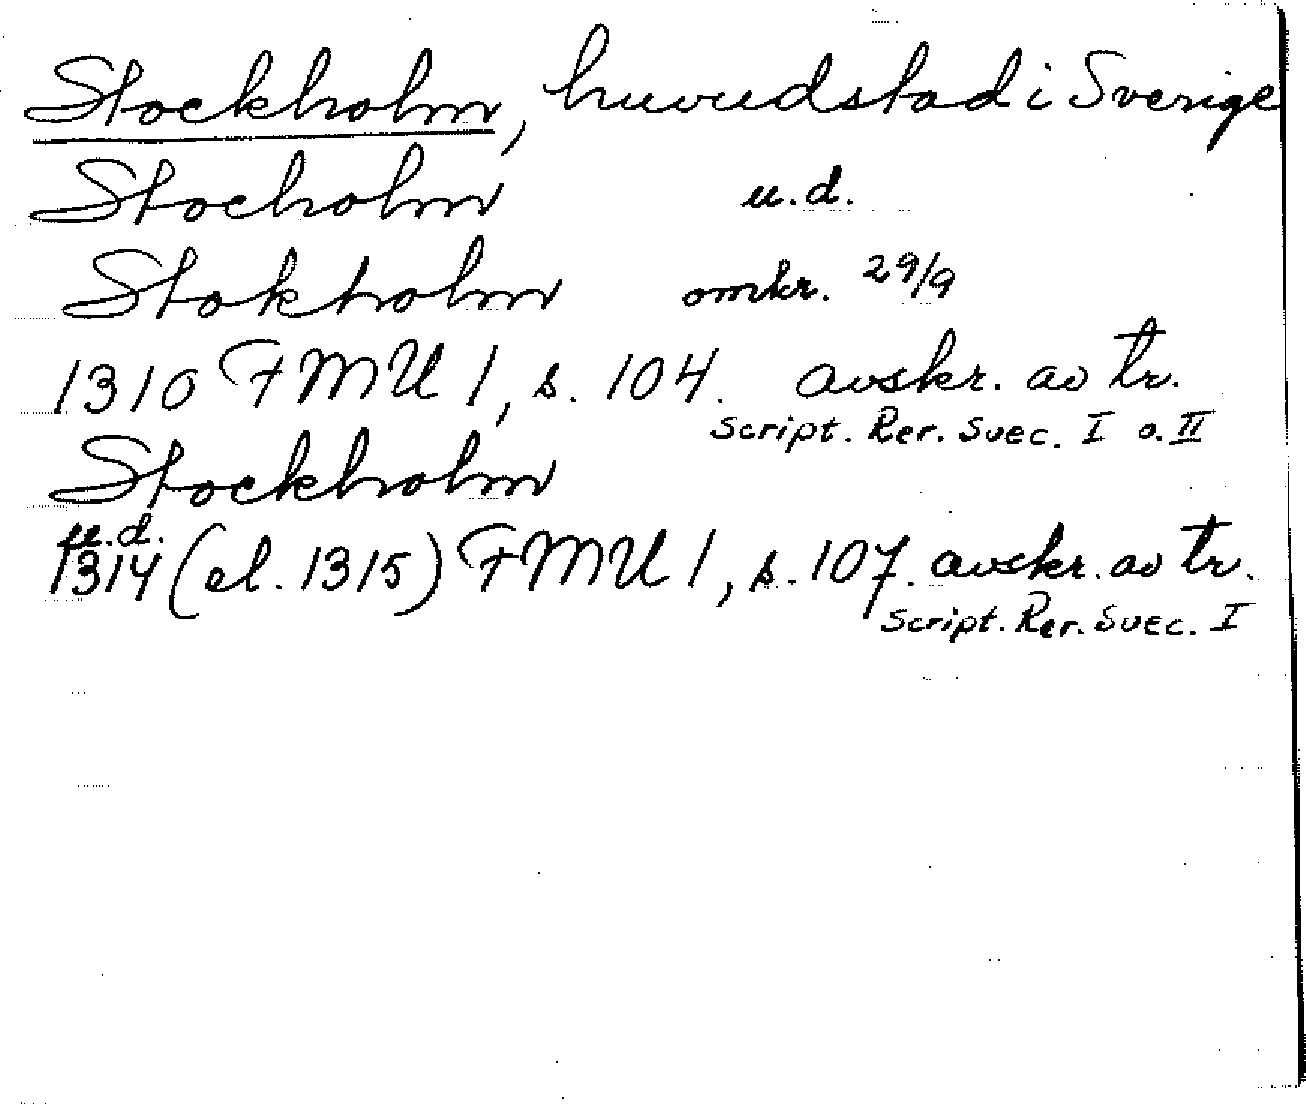 Stockholm, huvudstad i Sverige
Stocholm u.d.
Stokholm omkr. 29/9
1310 FMU 1, s. 104. avskr. av tr.
Script. Rer. Svec. I o. II
Stockholm
u.d.
1314 (el. 1315) FMU 1, s. 107. avskr. av tr.
Script. Rer. Svec. I